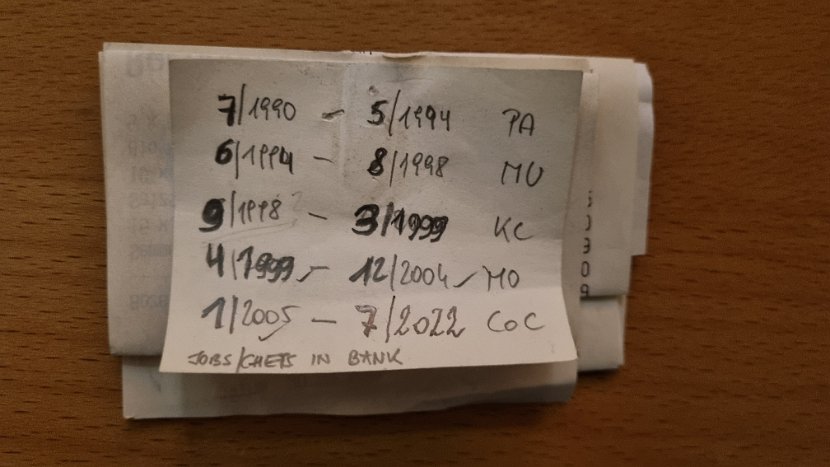 7/1990 - 5/1994 PA
6/1994 - 8/1998 MU
9/1998 - 3/1999 KC
4/1999 - 12/2004 MO
1/2005 - 7/2022 COC
JOBS/CHEFS IN BANK